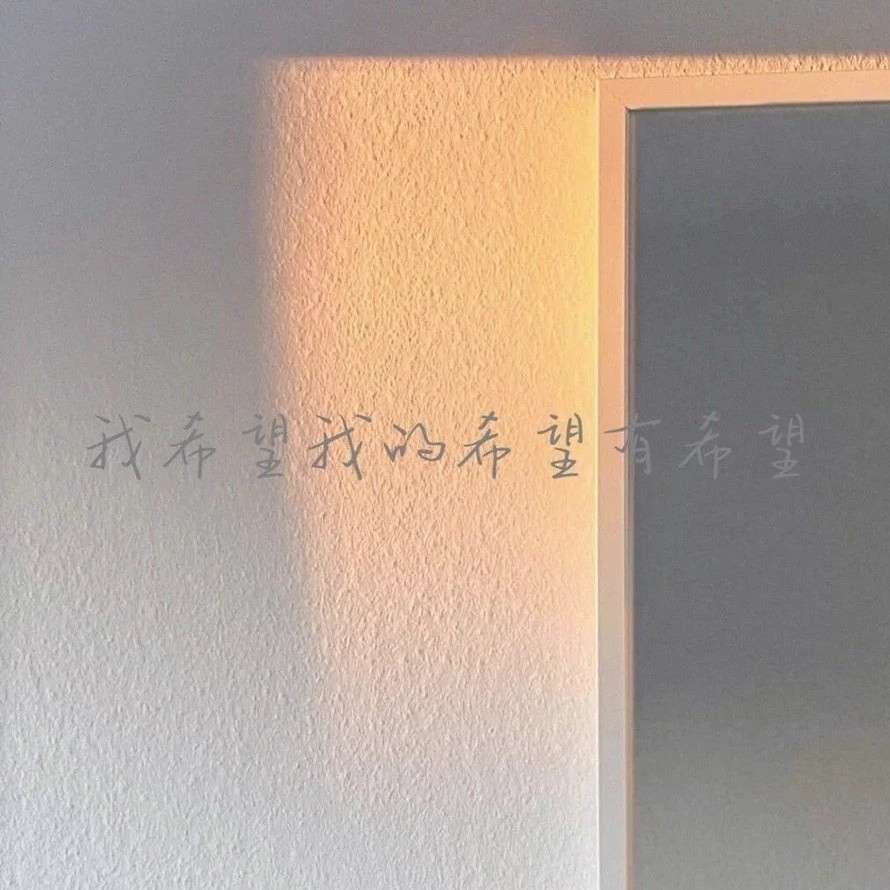 我希望我的希望有希望